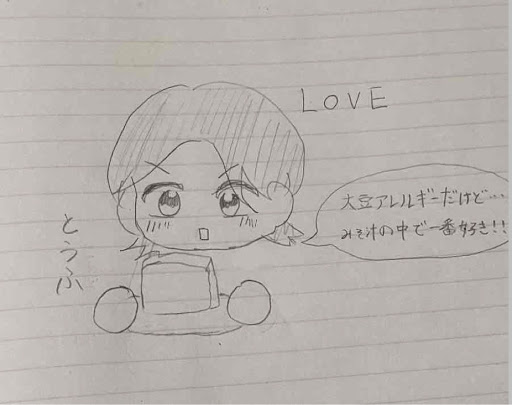 LOVE
大豆アレルギーだけど…
みそ汁の中で一番好き!!
とうふ